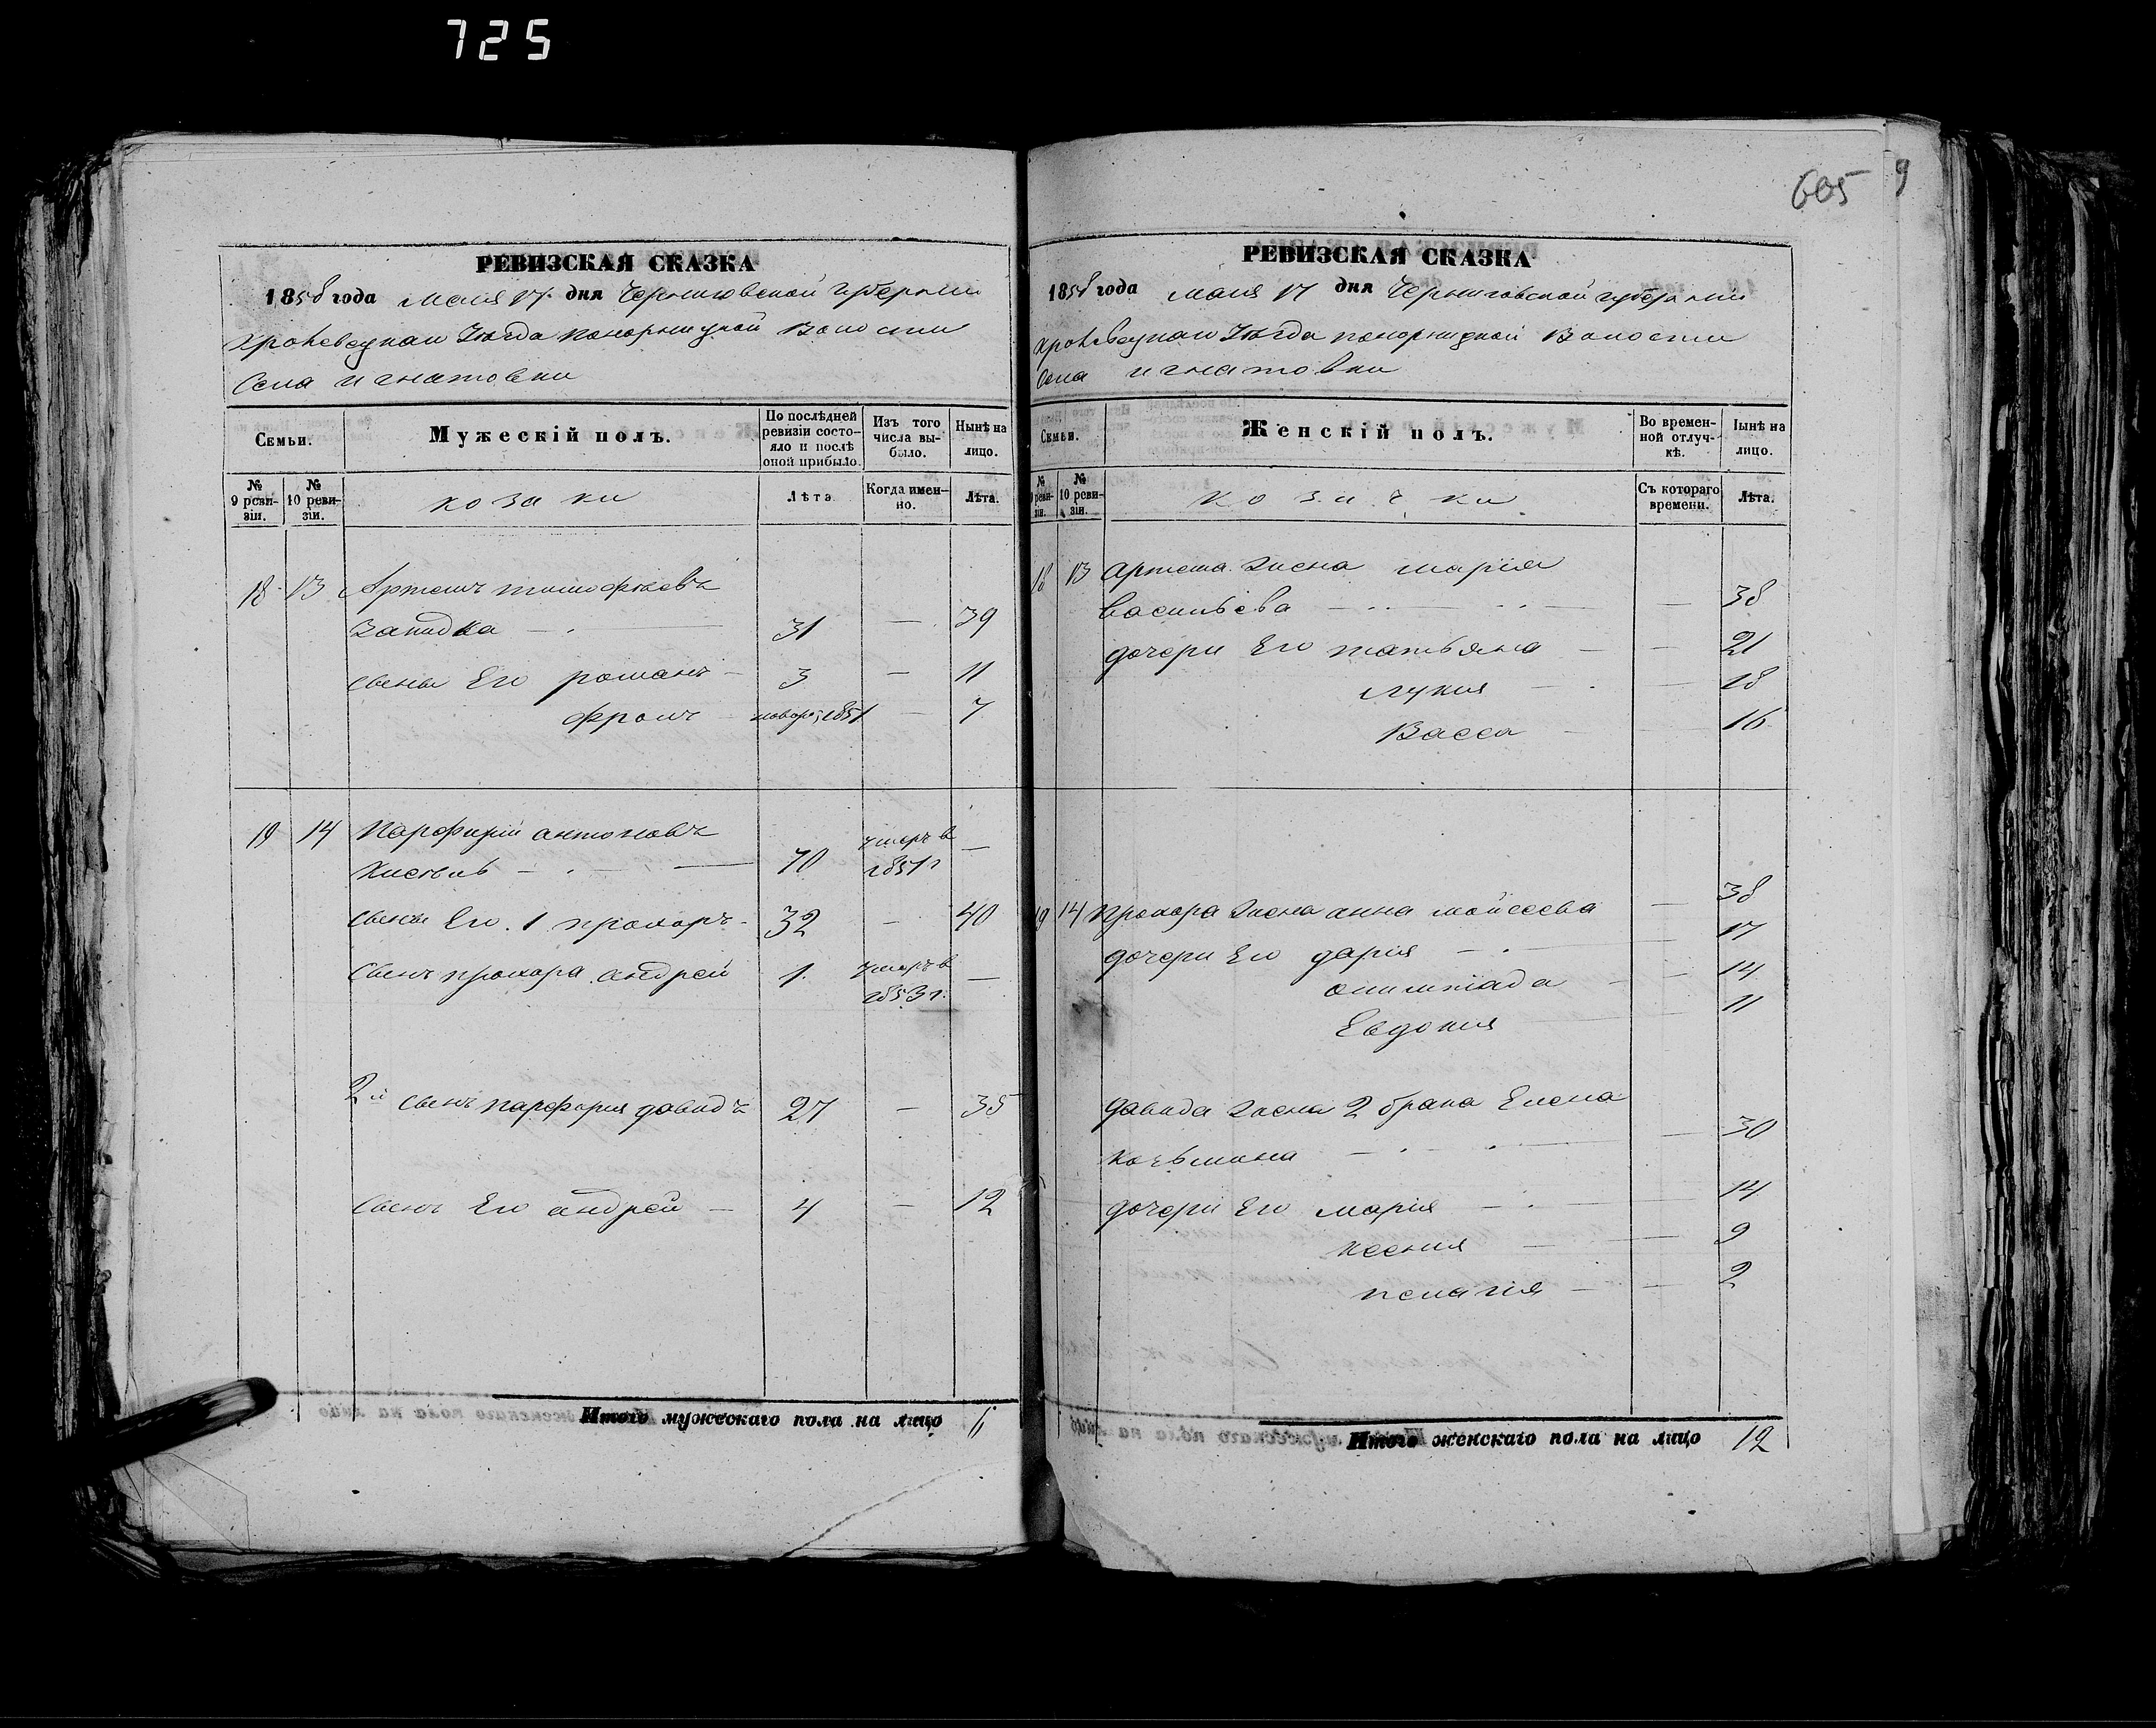 725
605
9
РЕВИЗСКАЯ СКАЗКА
1858 года Маія 17 дня Черниговской губерніи
Кролевецкаго Уѣзда понорницкой Волости
Села игнатовки
Семьи.
Мужескій полъ.
По послѣдней ревизіи состояло и послѣ оной прибыло.
Изъ того числа выбыло.
Нынѣ на лицо.
№ 9 ревизіи.
№ 10 ревизіи.
козаки
Лѣта
Когда именно.
Лѣта.
18 13 Артемъ тимофѣевъ
31 — 39
сыны Его романъ — 3 — 11
новорж 1851 — 7
19 14 Парфирій антоновъ
70 умеръ в 1857 г —
сыны Его. 1 прохоръ — 32 — 40
Сынъ прохора андрей 1. умеръ в 1853 г. —
2й сынъ парфирія давидъ 27 — 35
сынъ Его андрей — 4 — 12
Итого мужескаго пола на лицо 6
РЕВИЗСКАЯ СКАЗКА
1858 года маія 17 дня Черниговской губерніи
Кролевецкаго Уѣзда понорницкой Волости
Села игнатовки
Семьи.
Женскій полъ.
Во временной отлучкѣ.
Нынѣ на лицо.
№ 9 ревизіи.
№ 10 ревизіи.
козачки
Съ котораго времени.
Лѣта.
18 13 Артема жена марія
васильева — — 38
дочери Его татьяна — — 21
лукия — — 18
Васса — — 16
19 14 Прохора жена анна мойсеева — 38
дочери Его дарія — — 17
олимпіада — — 14
Евдокия — — 11
давида жена 2 брака Елена
козьмина — — 30
дочери Его марія — — 14
ксения — — 9
пелагия — — 2
Итого женскаго пола на лицо 12